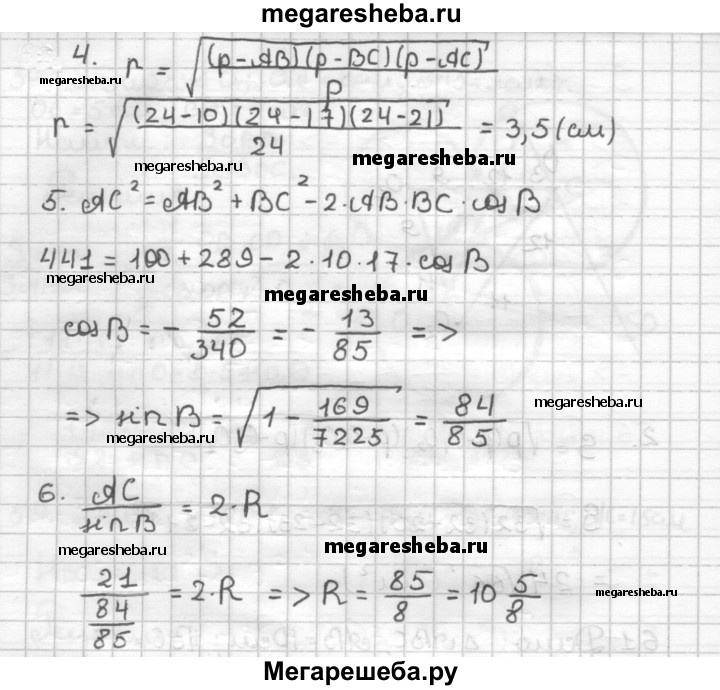 megaresheba.ru
4. r = √((p-AB)(p-BC)(p-AC)/p)
megaresheba.ru
r = √((24-10)(24-17)(24-21)/24) = 3,5 (см)
megaresheba.ru megaresheba.ru
5. AC² = AB² + BC² - 2·AB·BC·cosB
441 = 100 + 289 - 2·10·17·cosB
megaresheba.ru
megaresheba.ru
cosB = - 52/340 = - 13/85 =>
=> sinB = √(1 - 169/7225) = 84/85
megaresheba.ru
megaresheba.ru
6. AC/sinB = 2·R
megaresheba.ru megaresheba.ru
21/(84/85) = 2·R => R = 85/8 = 10 5/8
megaresheba.ru
Мегарешеба.ру